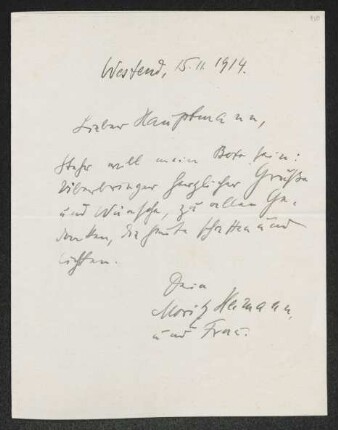 Westend, 15.11.1914.
Lieber Hauptmann,
Stehr will mein Bote sein:
Überbringer herzlicher Grüße
und Wünsche, zu allen Ge-
danken, die heute schatten und
lichten.
Dein
Moritz Heimann
und Frau.